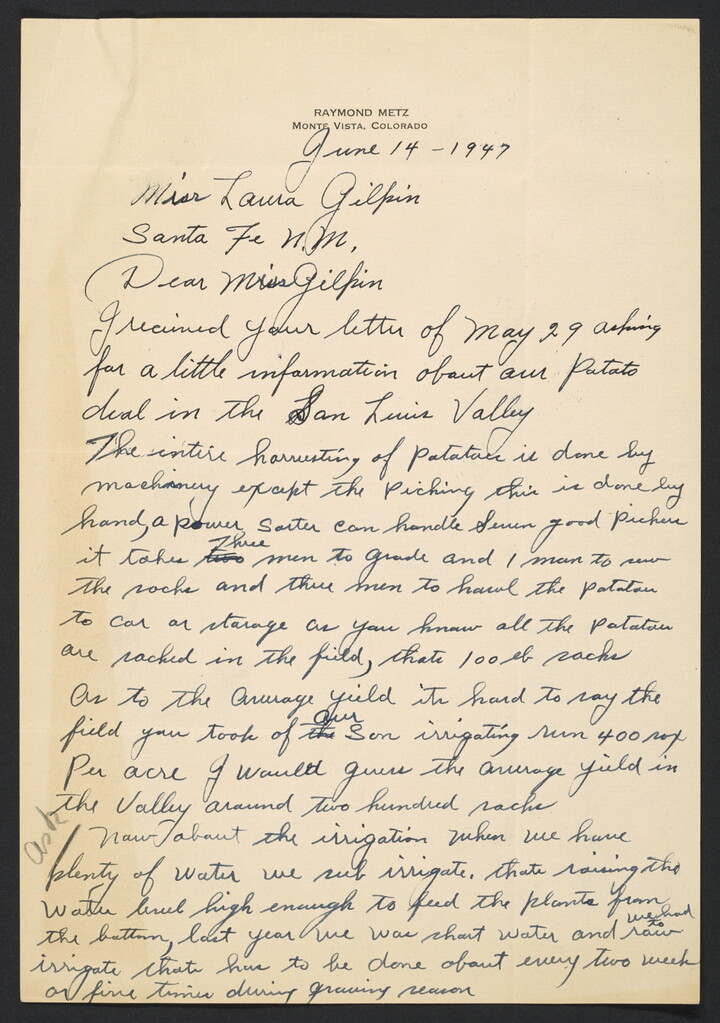 RAYMOND METZ
MONTE VISTA, COLORADO
June 14 - 1947
Miss Laura Gilpin
Santa Fe N.M,
Dear Miss Gilpin
I recieved your letter of May 29 asking
for a little information about our Patato
deal in the San Luis Valley
The intire harvesting of Patatoes is done by
machinery except the Picking this is done by
hand, a power sorter can handle Seven good Pickers
it takes two Three men to grade and 1 man to sew
the sacks and three men to hawl the Patatoes
to car or storage as you know all the Patatoes
are sacked in the field, thats 100 lb sacks
As to the average yield its hard to say the
field you took of the our Son irrigating run 400 sax
Per acre I would guess the average yield in
the Valley around two hundred sacks
ask
/ Now about the irrigation when we have
plenty of water we sub irrigate. thats raising the
water level high enough to feed the plants from
the bottom, last year we was short water and we had to
irrigate thats has to be done about every two week
or five times during growing season